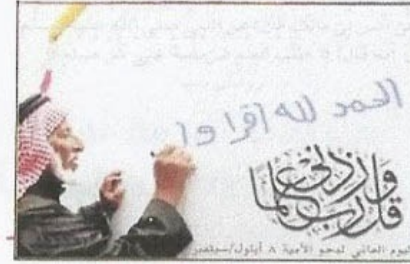 الحمد لله اقرا وا
وقل رب زدني علما
اليوم العالمي لمحو الأمية ٨ أيلول/سبتمبر